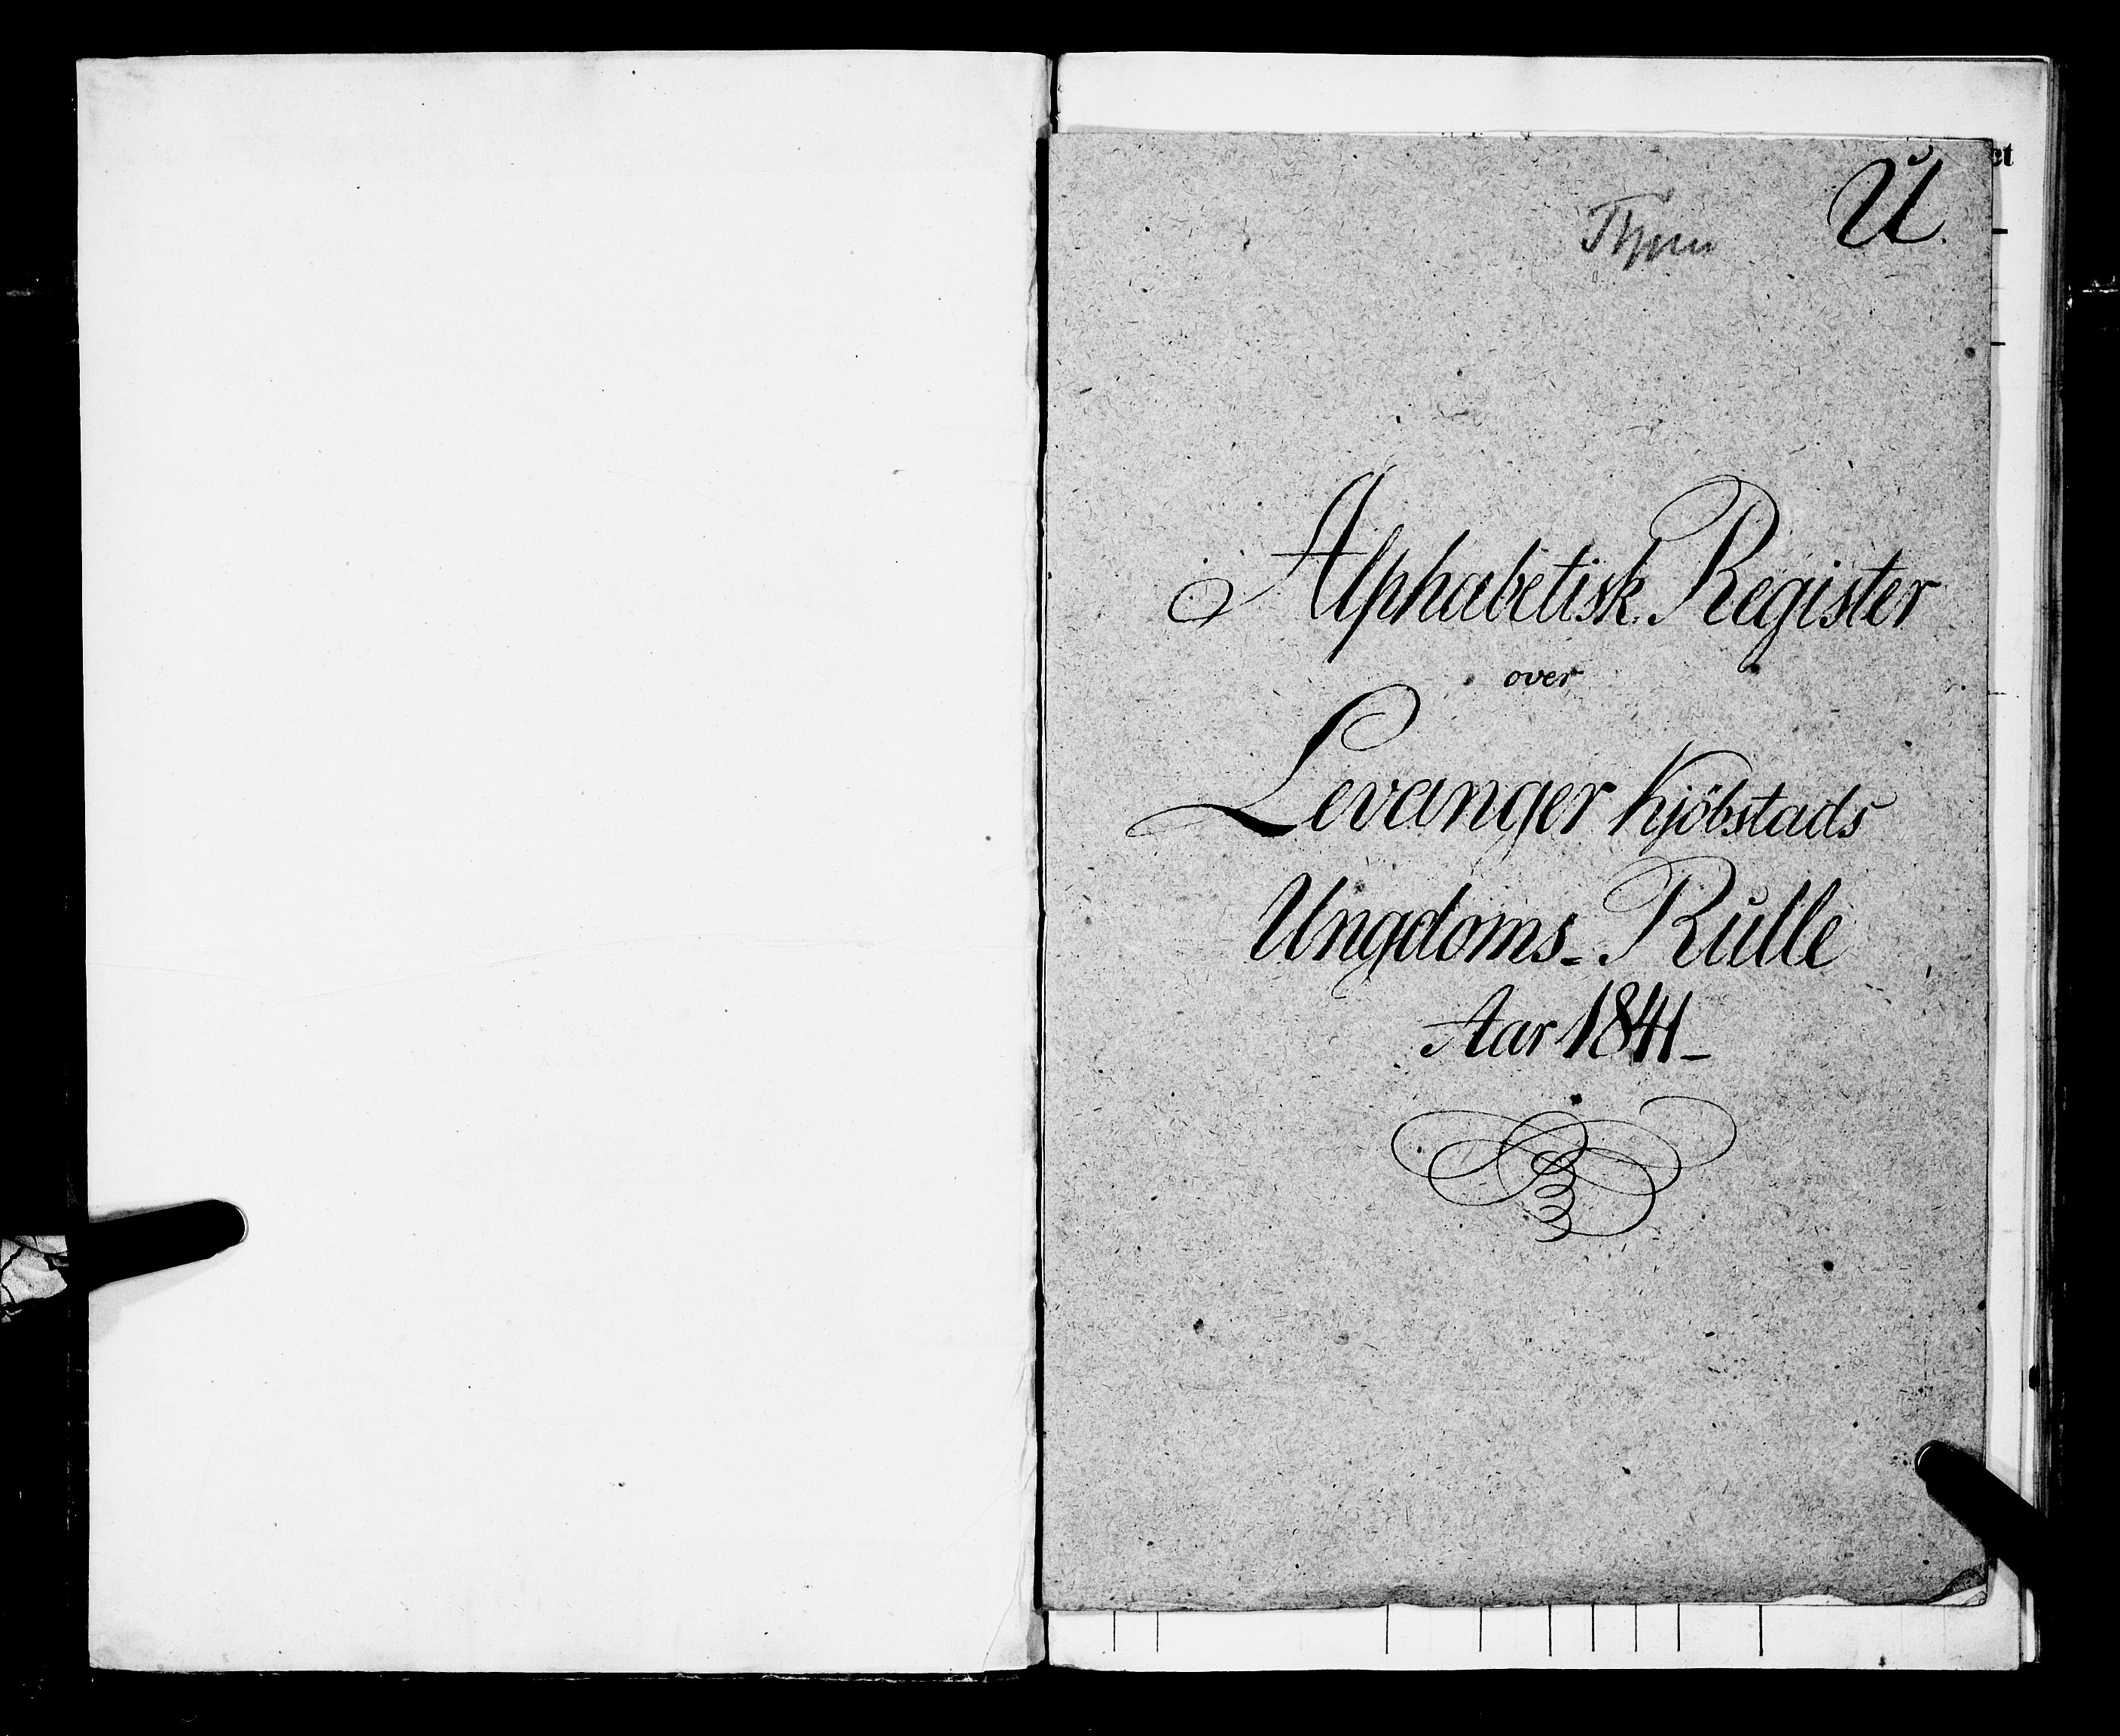 U.
Alphabetisk Register
over
Levanger Kjöbstads
Ungdoms-Rulle
Aar 1841-